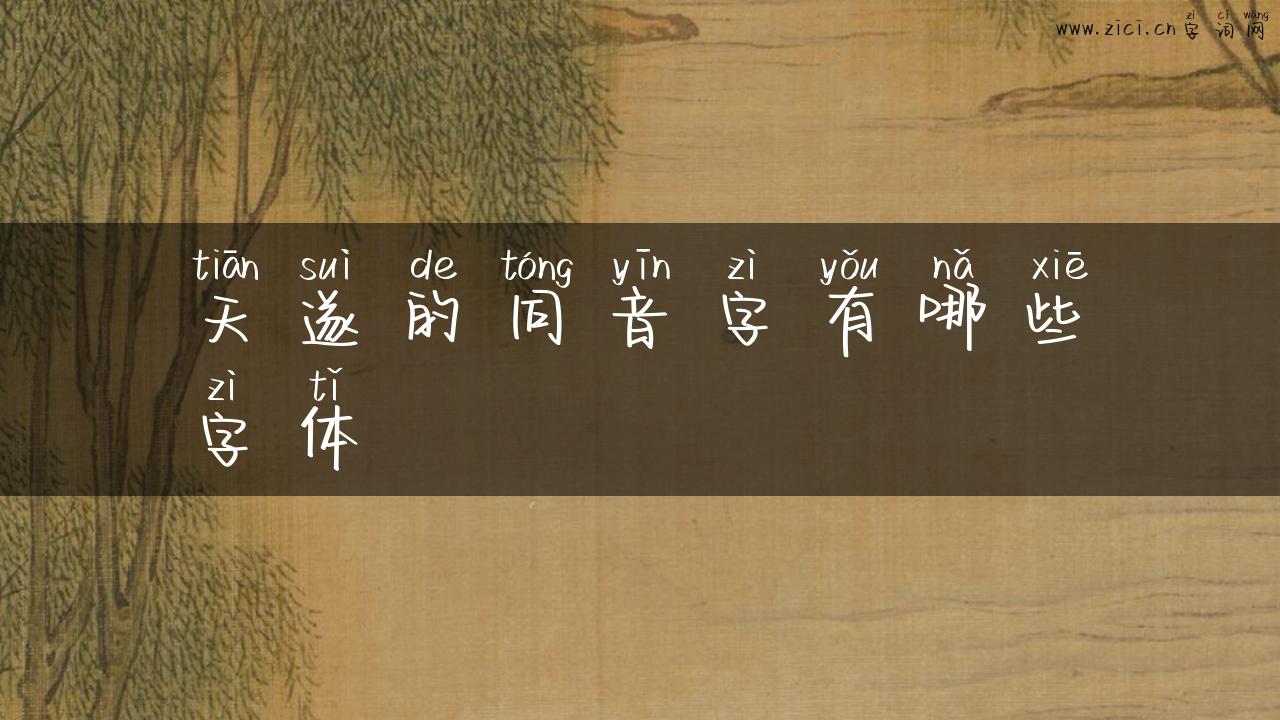 zì cí wǎng
www.zici.cn字词网
tiān suì de tóng yīn zì yǒu nǎ xiē
天遂的同音字有哪些
zì tǐ
字体